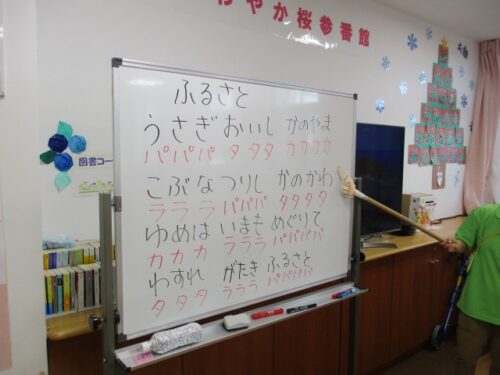 わやか桜参番館
図書コー
ふるさと
うさぎ おいし かのやま
パパパ タタタ カカカカ
こぶな つりし かのかわ
ラララ パパパ タタタタ
ゆめは いまも めぐりて
カカカ ラララ パパパパ
わすれ がたき ふるさと
タタタ ラララ パパパパ